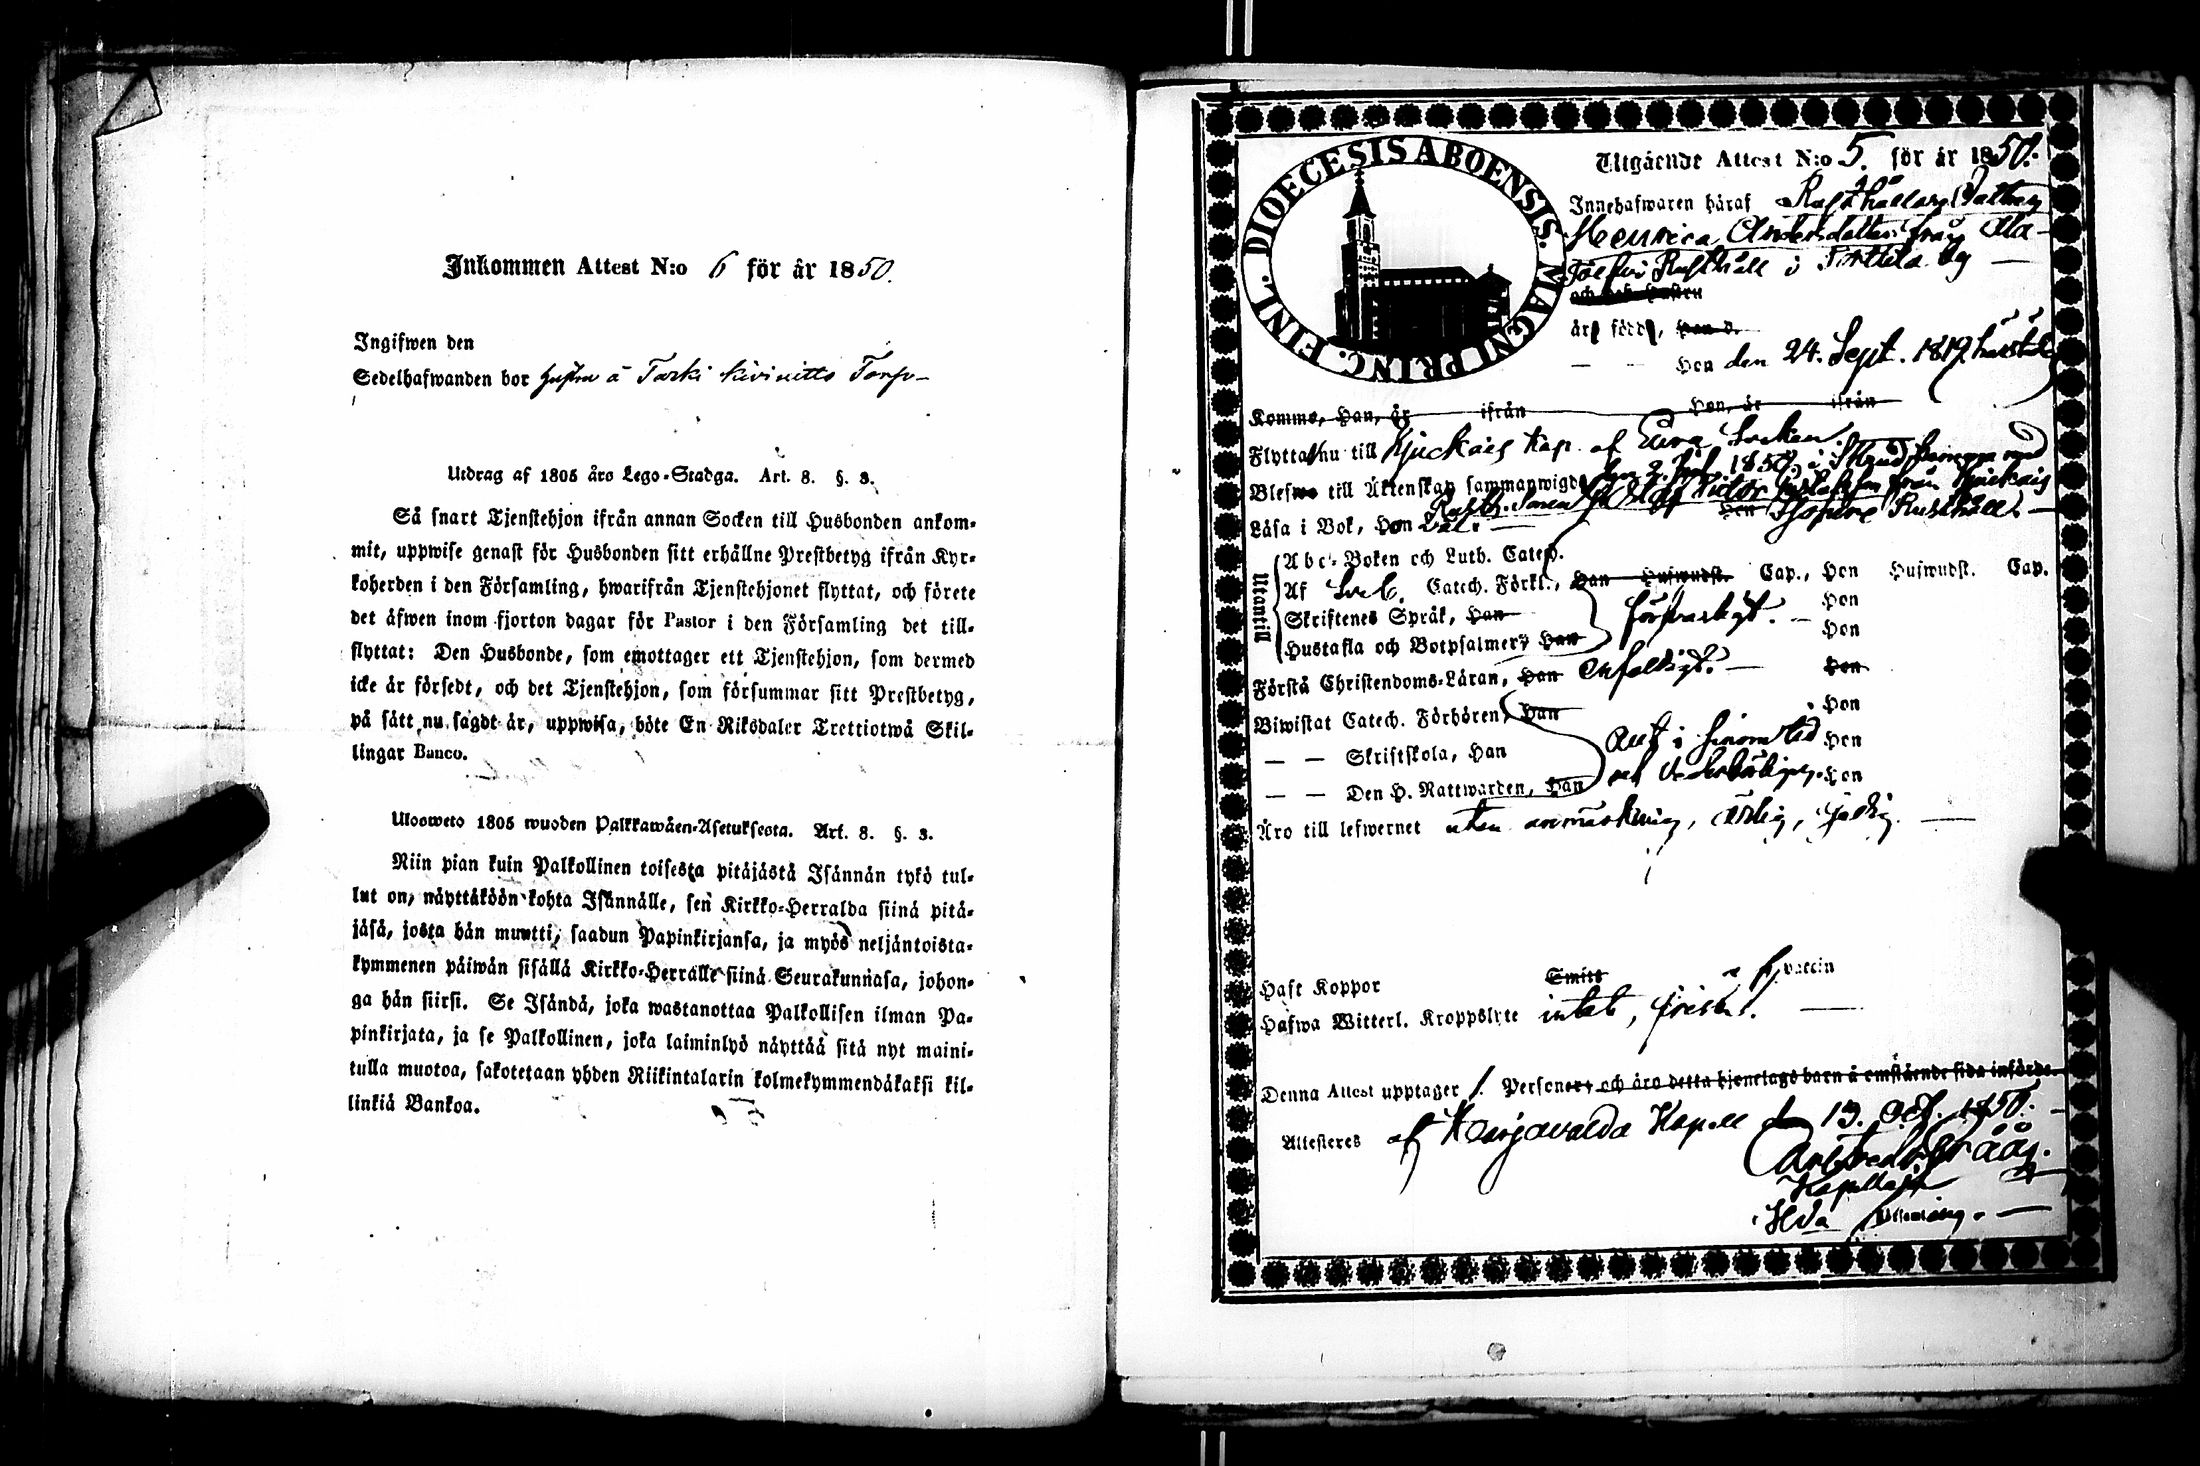 Inkommen Attest N:o 6 för år 1850.
Ingifwen den
Sedelhafwanden bor à Torp
Utdrag af 1805 års Lego-Stadga. Art. 8. §. 3.
Så snart Tjenstehjon ifrån annan Socken till Husbonden ankom-
mit, uppwise genast för Husbonden sitt erhållne Prestbetyg ifrån Kyr-
koherden i den Församling, hwarifrån Tjenstehjonet flyttat, och förete
det äfwen inom fjorton dagar för Pastor i den Församling det till-
flyttat: Den Husbonde, som emottager ett Tjenstehjon, som dermed
icke är försedt, och det Tjenstehjon, som försummar sitt Prestbetyg,
på sätt nu sagdt är, uppwisa, böte En Riksdaler Trettiotwå Skil-
lingar Banco.
Ulosweto 1805 wuoden Palkkawäen-Asetuksesta. Art. 8. §. 3.
Niin pian kuin Palkollinen toisesta pitäjästä Isännän tykö tul-
lut on, näyttäköön kohta Isännälle, sen Kirkko-Herralda siinä pitä-
jäsä, josta hän muutti, saadun Papinkirjansa, ja myös neljäntoista-
kymmenen päiwän sisällä Kirkko-Herralle siinä Seurakunnasa, johon-
ga hän siirsi. Se Isändä, joka wastanottaa Palkollisen ilman Pa-
pinkirjata, ja se Palkollinen, joka laiminlyö näyttää sitä nyt maini-
tulla muotoa, sakotetaan yhden Riikintalarin kolmekymmendäkaksi kil-
linkiä Bankoa.
DIOECESIS ABOENSIS. MAGNI PRINC. FINL.
Utgående Attest N:o 5. för år 1850.
Innehafwaren häraf Rusthållare Dattren
Henrica Andersdotter från
Rusthåll i Torttila by
och
är född,
Hon den 24. Sept. 1819
Komme, Han, år ifrån Hon, år ifrån
Flyttar nu till Kjuckais Kap. af Eura Socken.
Blefwo till Äktenskap sammanwigde den 1850
Rusth. Sonen Victor Gustafsson från Kjuckais
Läsa i Bok, Hon Hon Rusthåll.
Utantill
Abc-Boken och Luth. Catech.
Af Catech. Förkl., Han Hufwudst. Cap., Hon Hufwudst. Cap.
Skriftenes Språk, Han försvarligt. Hon
Hustafla och Botpsalmer, Han Hon
Förstå Christendoms-Läran, Han enfaldigt. Hon
Biwistat Catech. Förhören, Han Hon
— — Skriftskola, Han Hon
— — Den H. Nattwarden, Han och Hon
Äro till lefwernet utan anmärkning, ärlig,
Haft Koppor Smitt vaccin
Hafwa Witterl. Kroppslyte intet, frisk.
Denna Attest upptager 1. Personer, och äro detta hjonelags barn å omstående sida införde.
Attesteres af Harjavalda Kapell den 13. Oct. 1850.
Kapellan